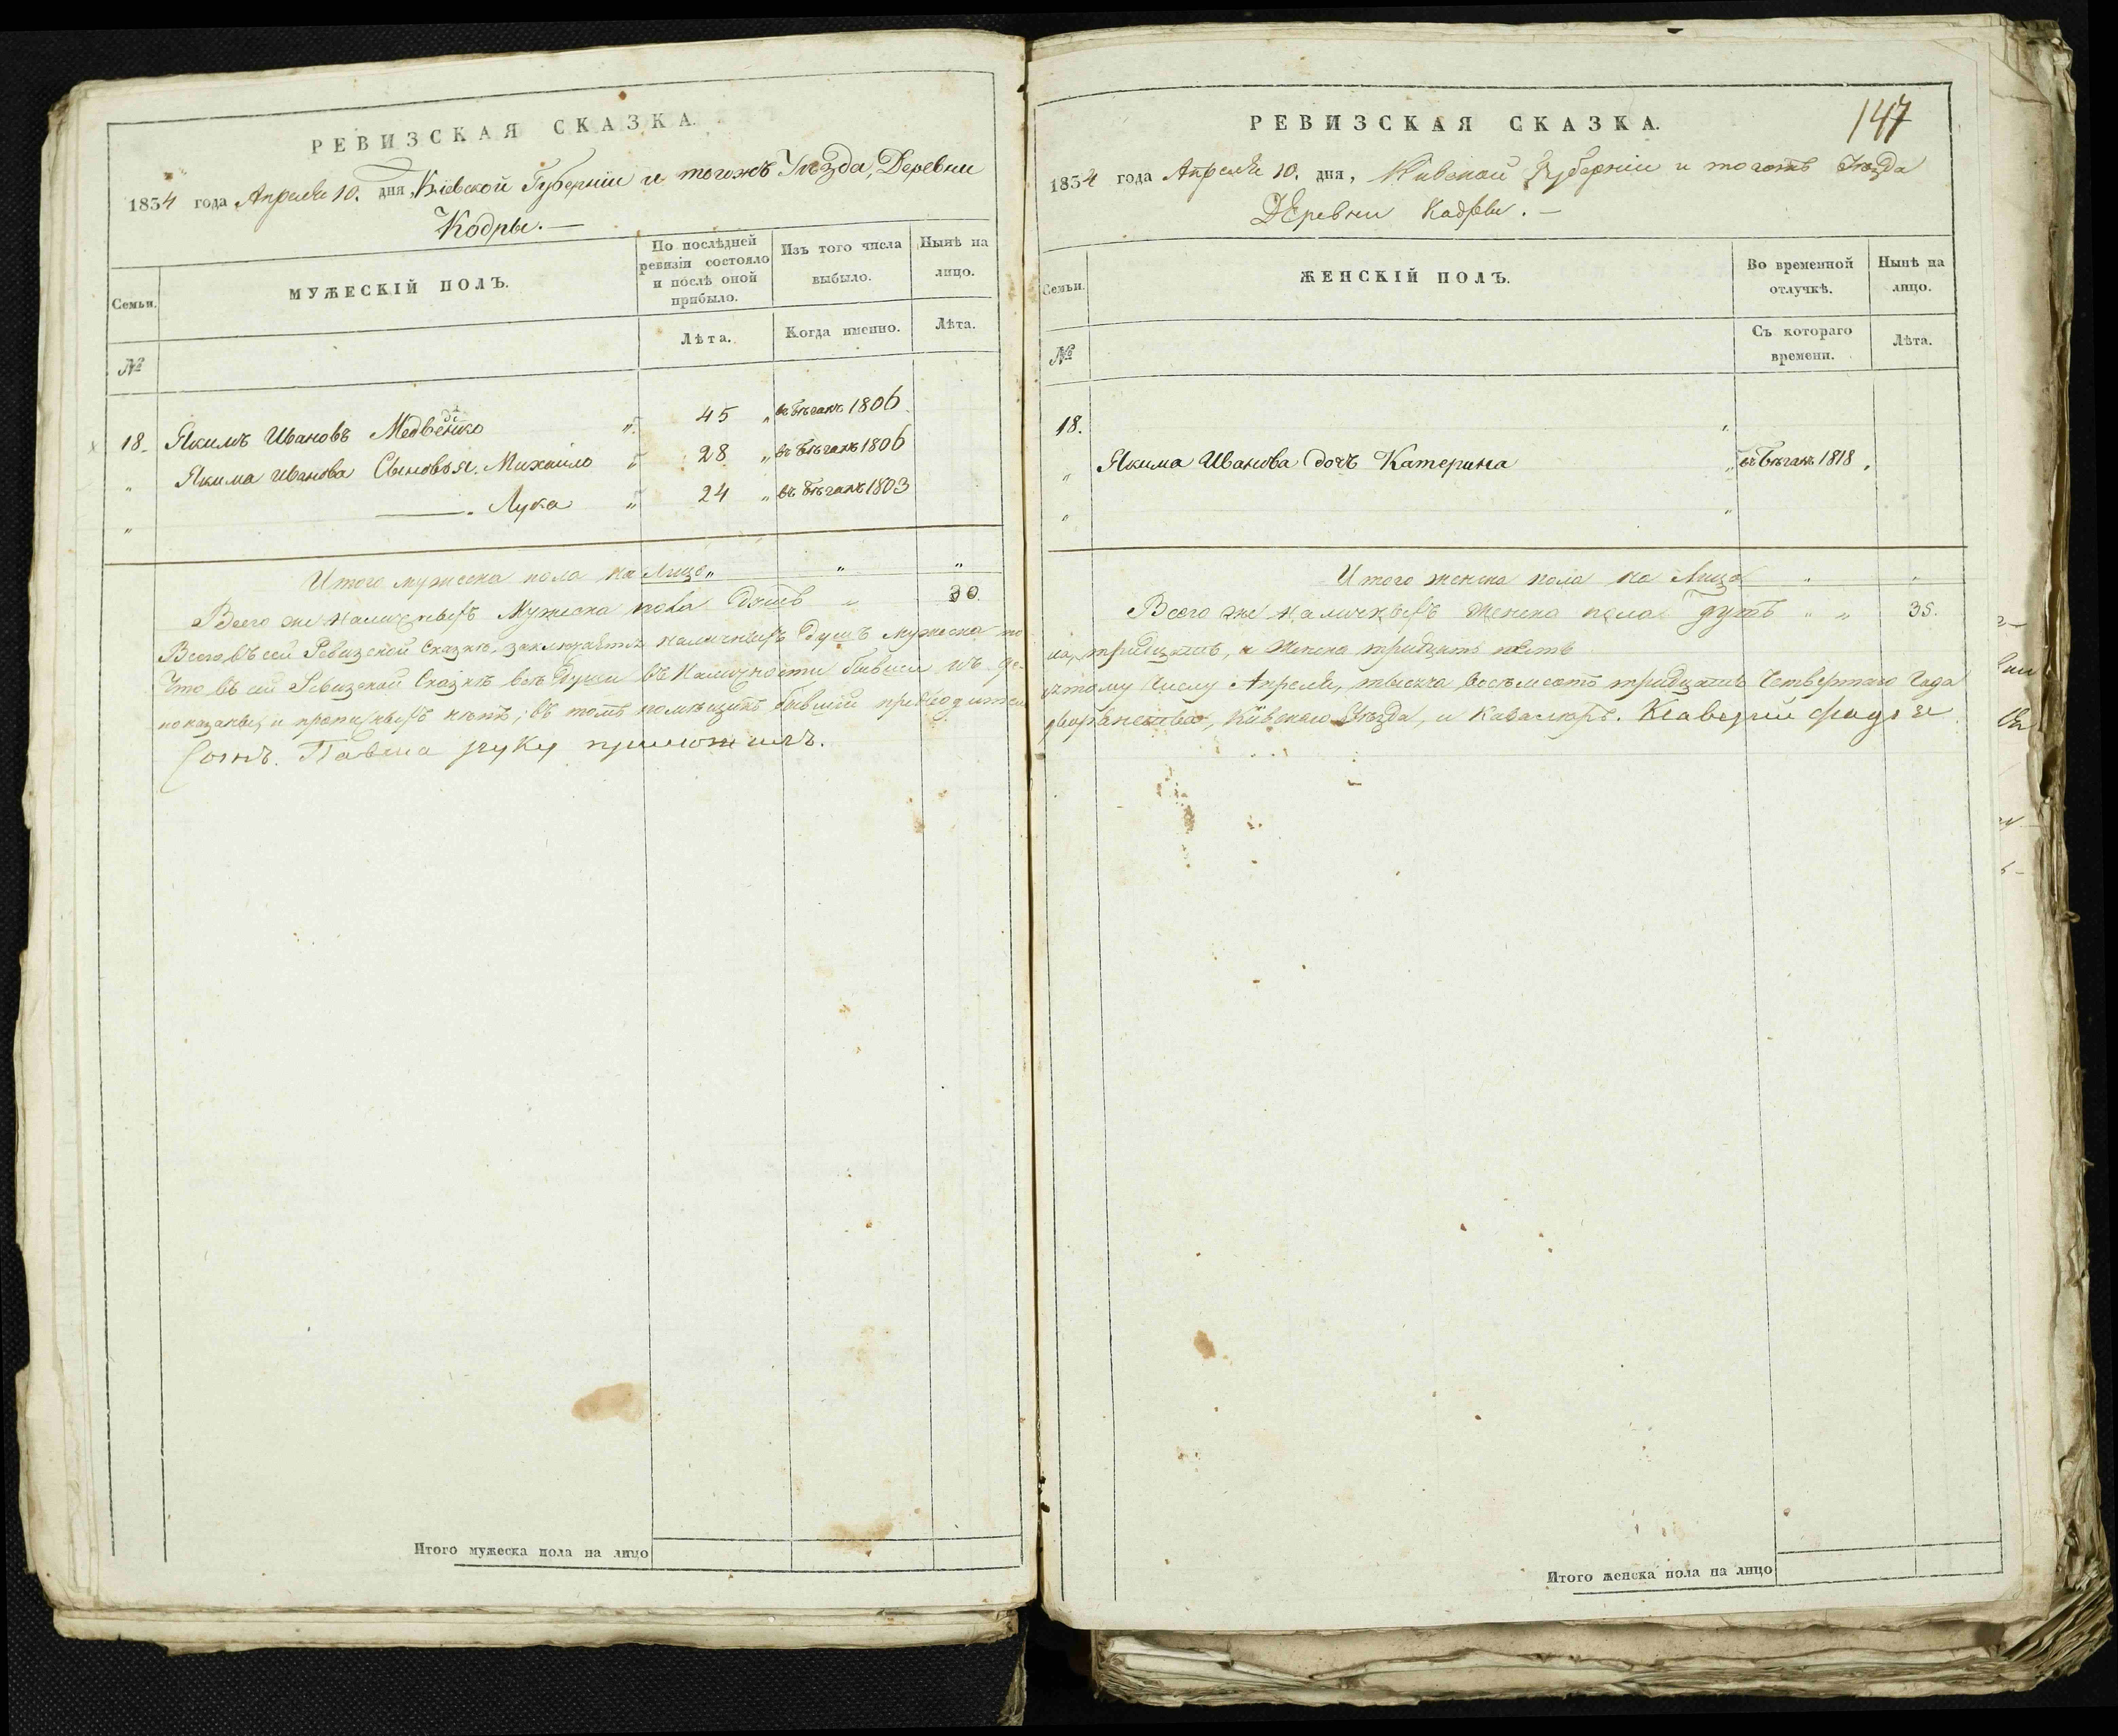 РЕВИЗСКАЯ СКАЗКА.
1834 года Апреля 10. дня, Кіевской Губерніи и тогожъ Уѣзда, Деревни
Кодры. —
Семьи.
МУЖЕСКІЙ ПОЛЪ.
По послѣдней ревизіи состояло и послѣ оной прибыло.
Изъ того числа выбыло.
Нынѣ на лицо.
№
Лѣта.
Когда именно.
Лѣта.
18. Якимъ Ивановъ Медведенко 45 въ бѣгахъ 1806
" Якима Иванова Сыновья. Михайло " 28 " въ бѣгахъ 1806
" —. Лука " 24 " въ бѣгахъ 1803
Итого мужеска пола на Лицо " " "
Всего же наличныхъ Мужеска пола Душъ " 30
Всего въ сей Ревизской Сказкѣ, заключается наличныхъ Душъ мужеска по
Что въ сей Ревизской Сказкѣ всѣ Души въ Наличности бывшія къ де-
показаны, и прописныхъ нѣтъ; въ томъ помѣщикъ бывшій предводитель
Сынъ. Павша руку приложилъ.
Итого мужеска пола на лицо
147
РЕВИЗСКАЯ СКАЗКА.
1834 года Апреля 10. дня, Кіевской Губерніи и тогожъ Уѣзда
Деревни Кодры. —
Семьи.
ЖЕНСКІЙ ПОЛЪ.
Во временной отлучкѣ.
Нынѣ на лицо.
№
Съ котораго времени.
Лѣта.
18.
" Якима Иванова дочъ Катерина " въ бѣгахъ 1818 "
"
Итого женска пола на Лицо " "
Всего же наличныхъ женска пола душъ " " 35.
ла, тридцать, а Женска тридцать пять
сятому Числу Апреля, тысяча восемсотъ тридцать Четвертаго Года
дворянства, Кіевскаго Уѣзда, и Кавалеръ. Ксаверій
Итого женска пола на лицо